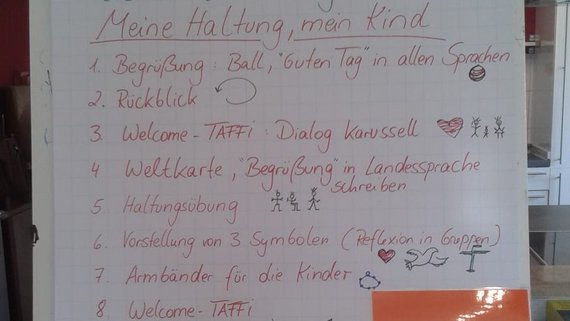 Meine Haltung, mein Kind
1. Begrüßung: Ball, "Guten Tag" in allen Sprachen
2. Rückblick
3. Welcome-TAFFI: Dialog Karussell
4 Weltkarte, "Begrüßung" in Landessprache
schreiben
5. Haltungsübung
6. Vorstellung von 3 Symbolen (Reflexion in Gruppen)
7. Armbänder für die Kinder
8. Welcome-TAFFI